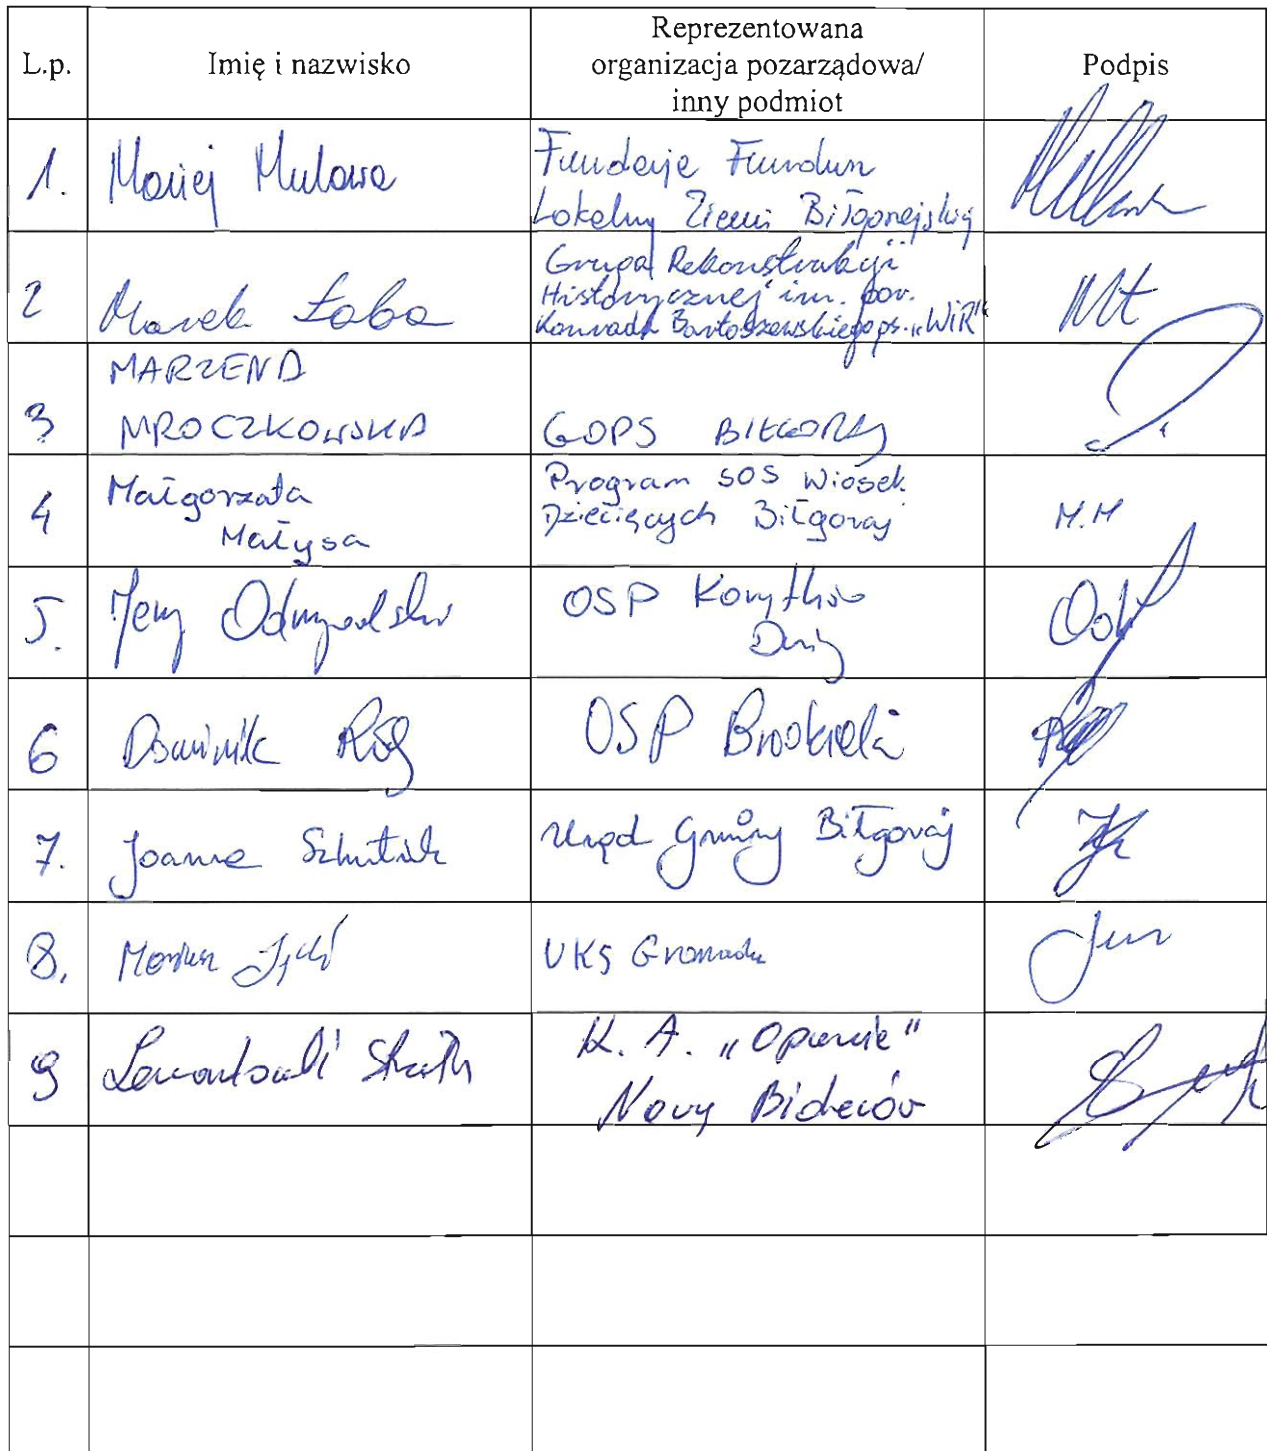 L.p.
Imię i nazwisko
Reprezentowana
organizacja pozarządowa/
inny podmiot
Podpis
1. Maciej Mulawa
Fundacja Fundusz
Lokalny Ziemi Biłgorajskiej
2 Marek Łaba
Grupa Rekonstrukcji
Historycznej im. por.
Konrada Bartoszewskiego ps. „WiR"
Mł
3
MARZENA
MROCZKOWSKA
GOPS BIŁGORAJ
4
Małgorzata
Małysa
Program SOS Wiosek
Dziecięcych Biłgoraj
M.M
5. Jerzy
OSP Korytków
Duży
6 Dominik Róg
OSP
7. Joanna
Urząd Gminy Biłgoraj
8.
UKS Gromada
9
K. A. „Oparcie"
Nowy